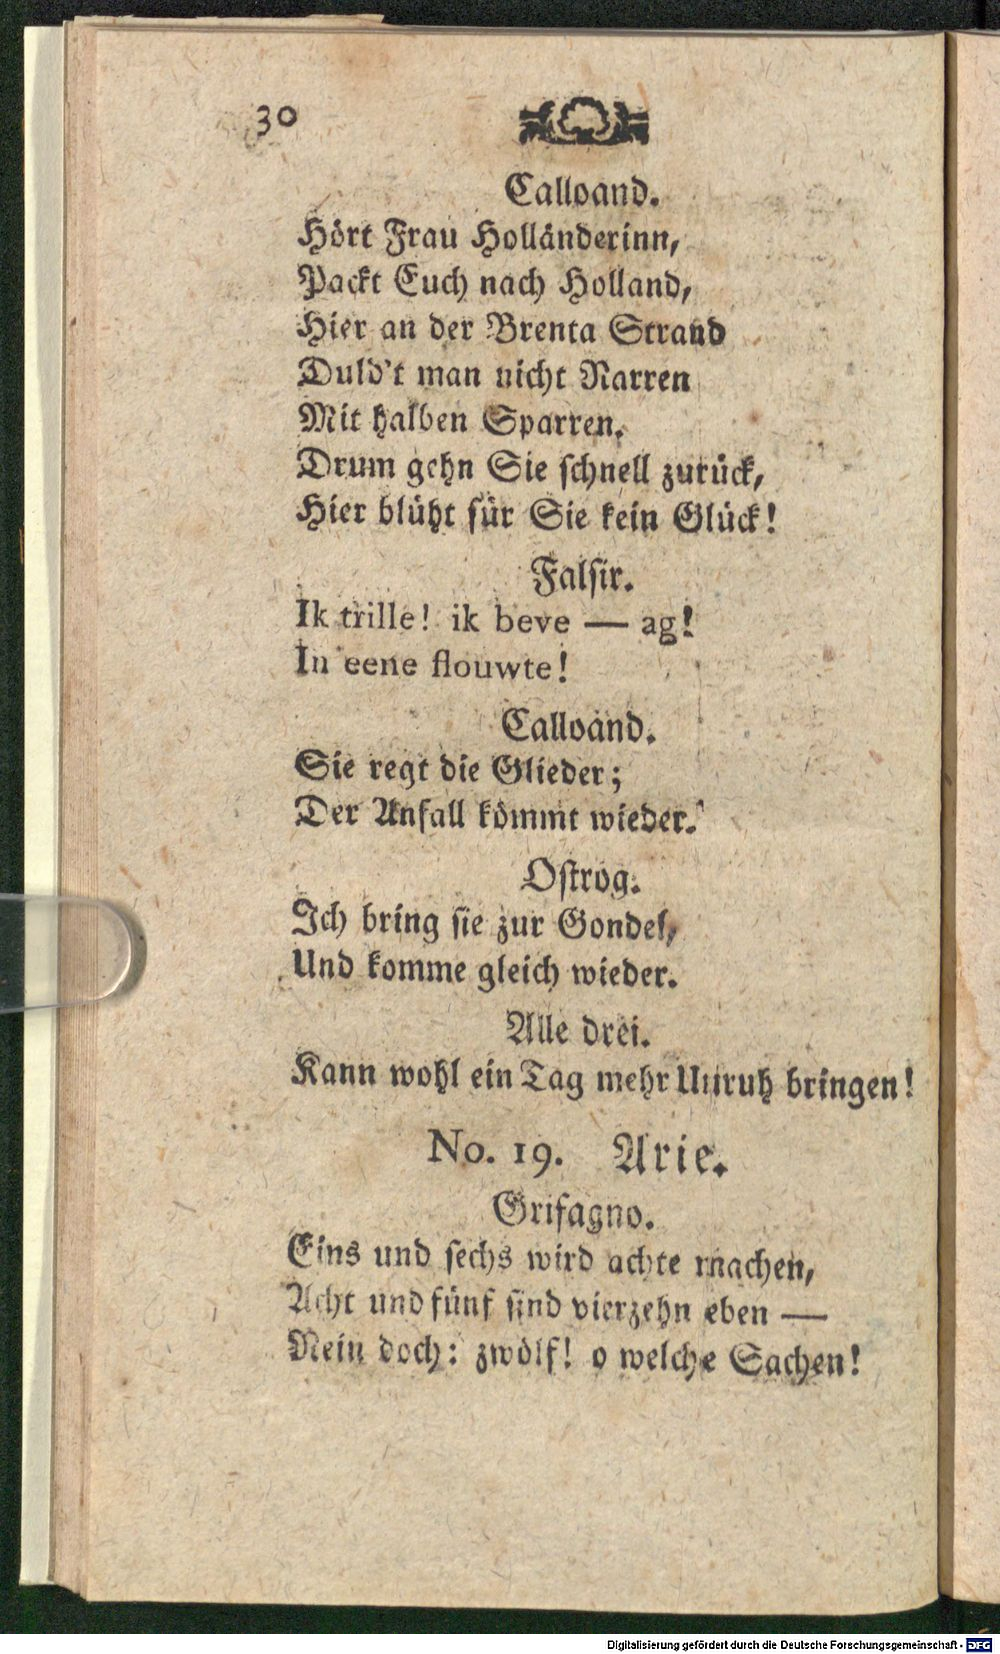 30
Calloand.
Hört Frau Holländerinn,
Packt Euch nach Holland,
Hier an der Brenta Strand
Duld't man nicht Narren
Mit halben Sparren.
Drum gehn Sie schnell zurück,
Hier blüht für Sie kein Glück!
Falsir.
Ik trille! ik beve — ag!
In eene flouwte!
Calloand.
Sie regt die Glieder;
Der Anfall kömmt wieder.
Ostrog.
Ich bring sie zur Gondel,
Und komme gleich wieder.
Alle drei.
Kann wohl ein Tag mehr Unruh bringen!
No. 19. Arie.
Grifagno.
Eins und sechs wird achte machen,
Acht und fünf sind vierzehn eben —
Nein doch: zwölf! o welche Sachen!
Digitalisierung gefördert durch die Deutsche Forschungsgemeinschaft - DFG